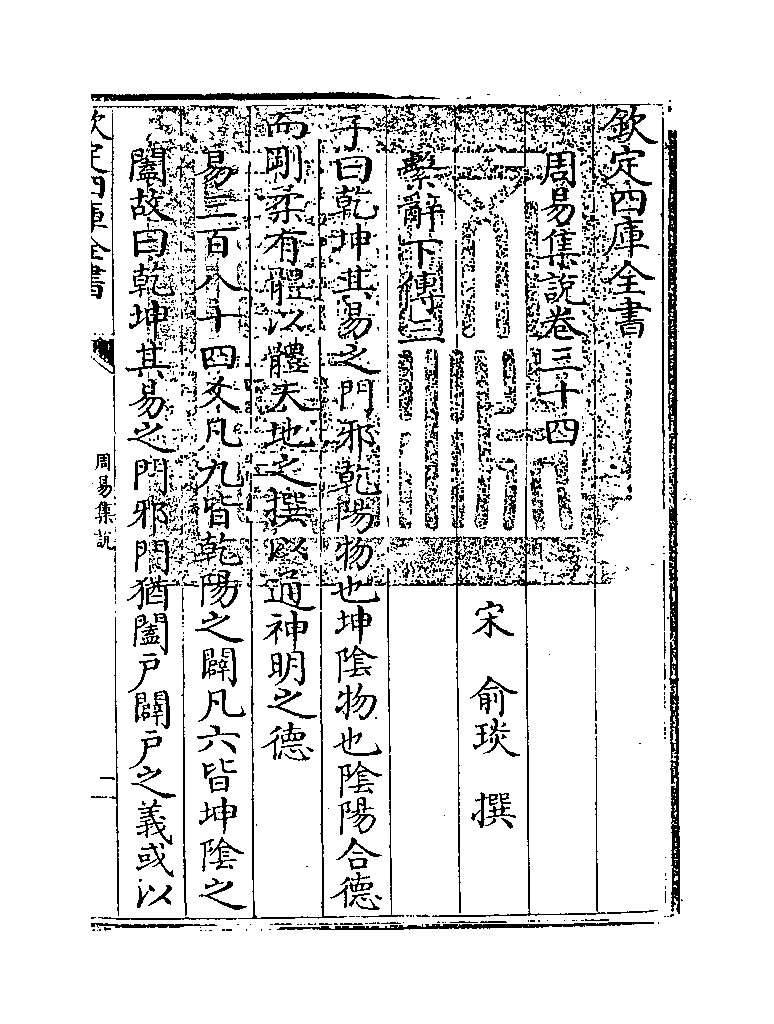 欽定四庫全書
周易集說卷三十四
宋　俞琰　撰
繫辭下傳三
子曰乾坤其易之門邪乾陽物也坤陰物也陰陽合德
而剛柔有體以體天地之撰以通神明之德
易三百八十四爻凡九皆乾陽之闢凡六皆坤陰之
闔故曰乾坤其易之門邪門猶闔戶闢戶之義或以
欽定四庫全書
周易集說